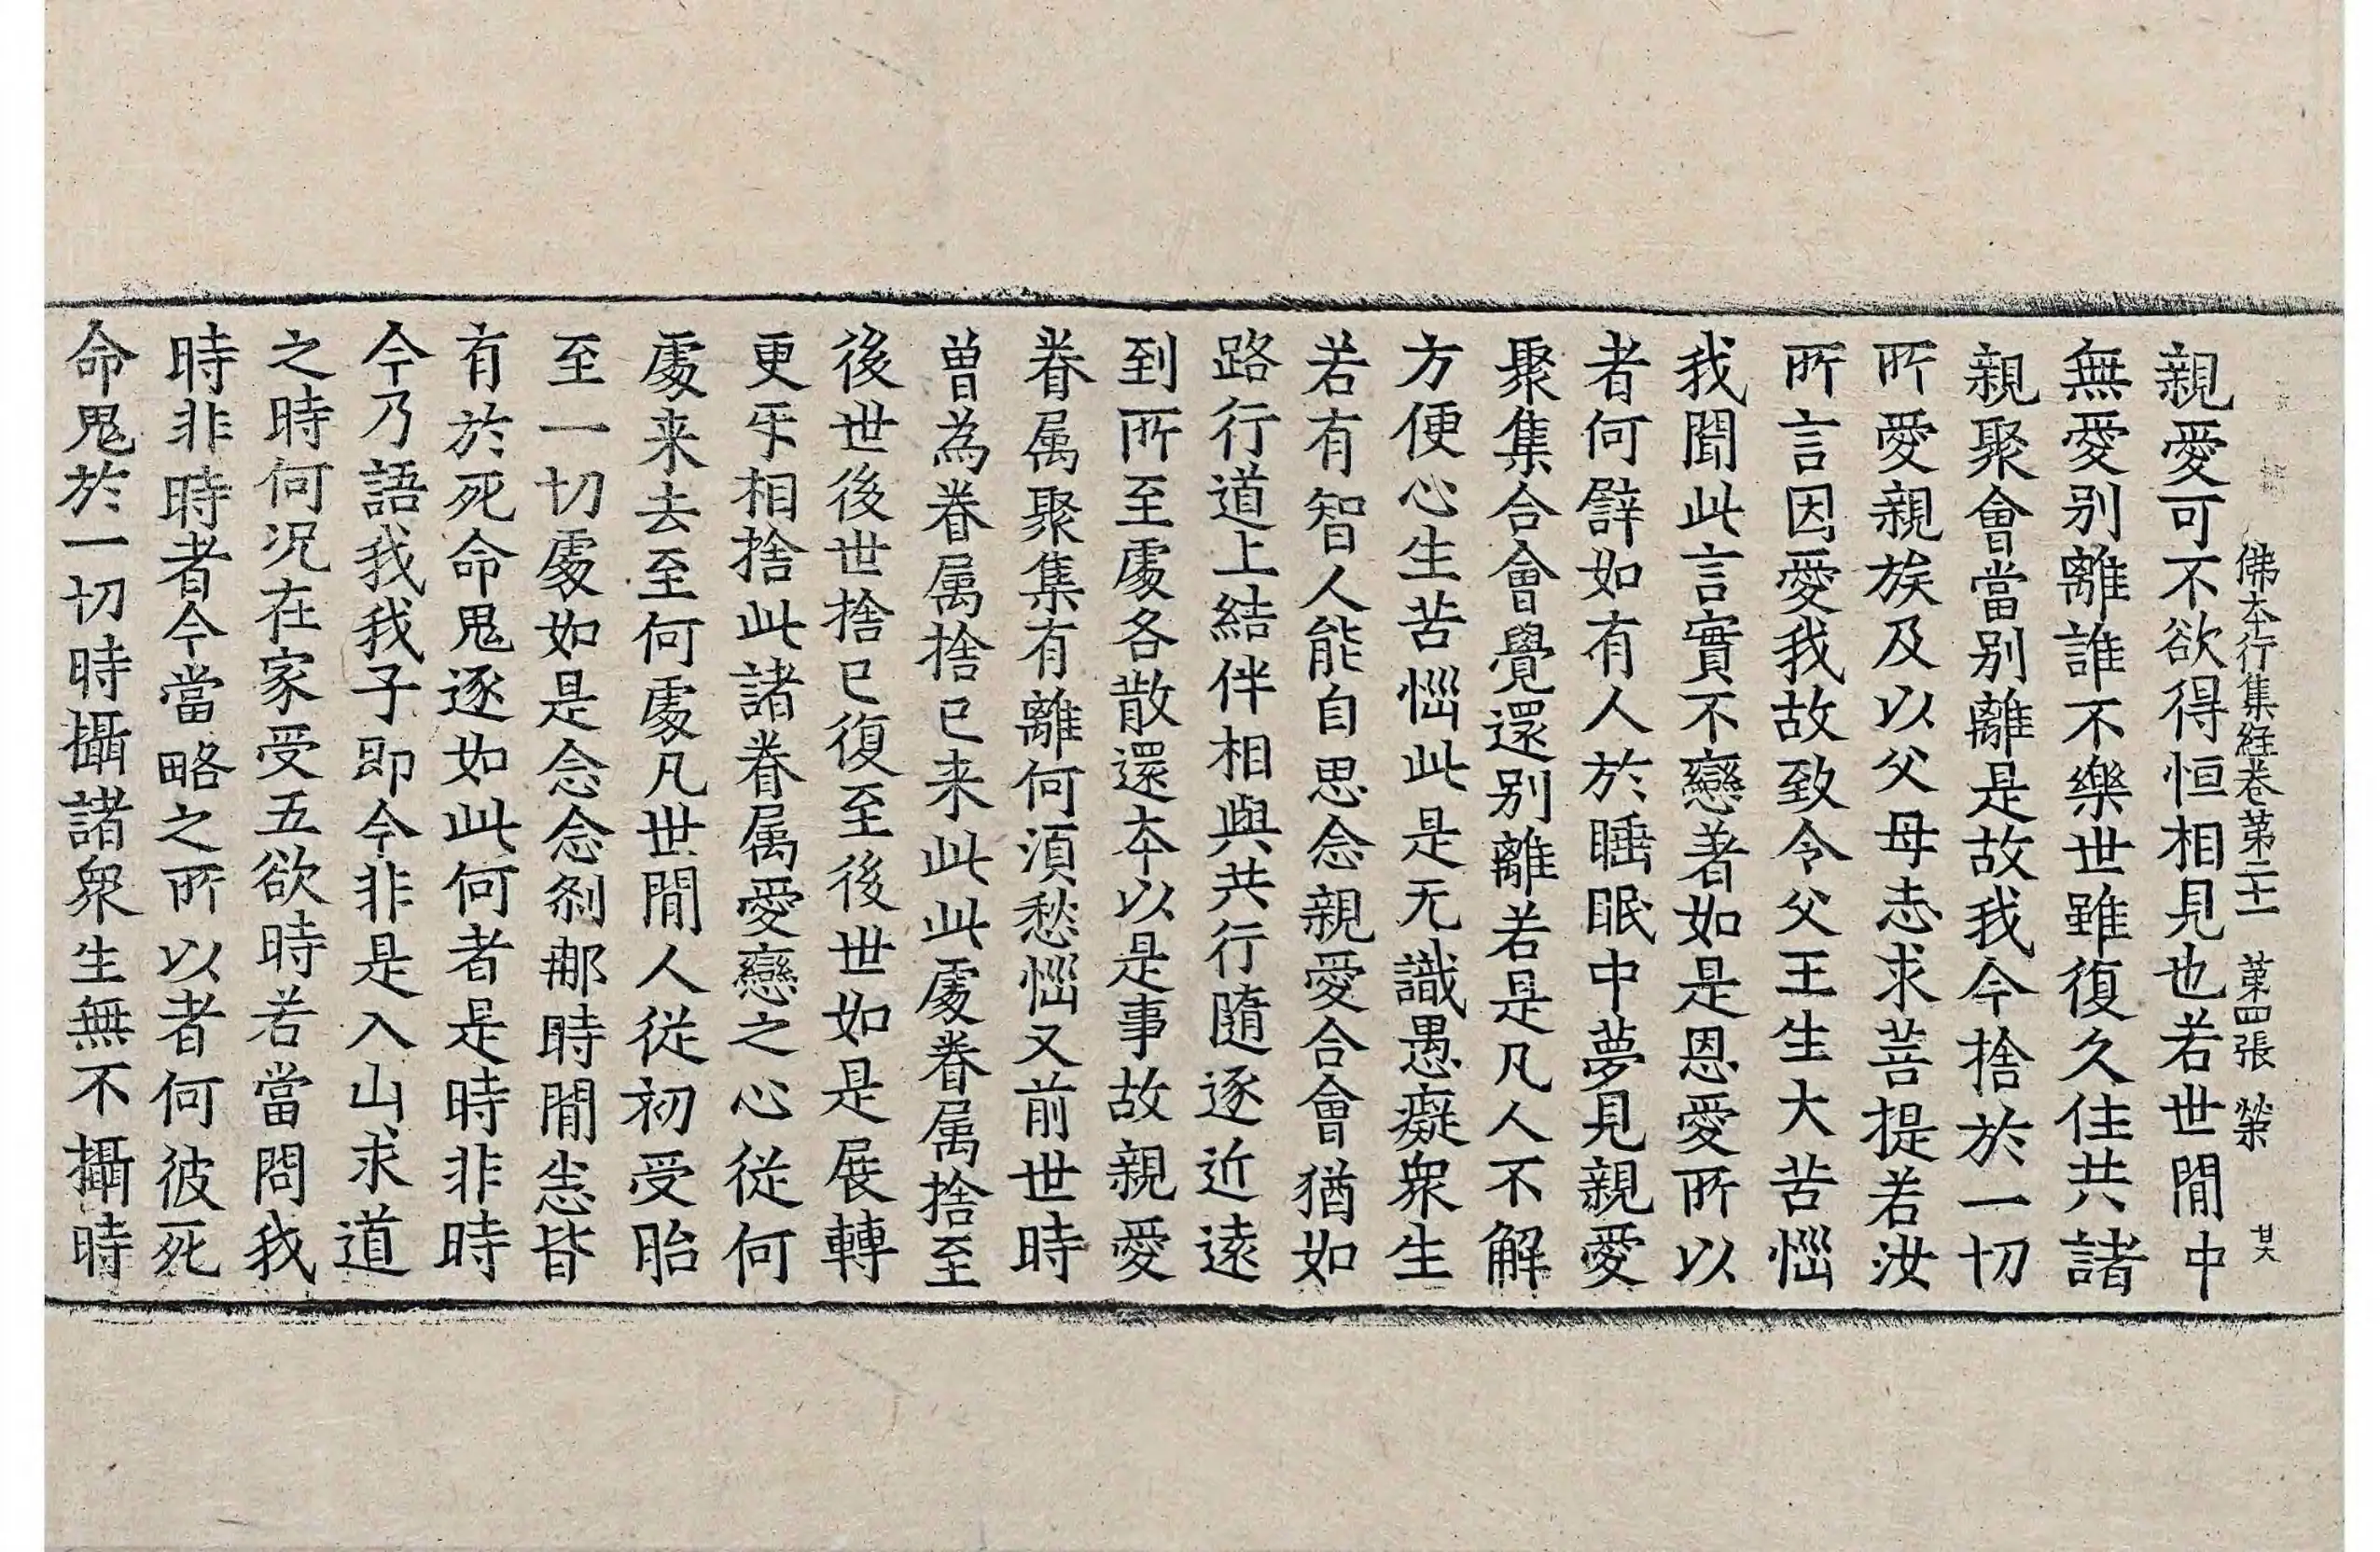 佛本行集経卷第二十一 第四張 㰂
親愛可不欲得恒相見也若世間中
無愛別離誰不樂世雖復久住共諸
親聚會當別離是故我今捨於一切
所愛親族及以父母志求菩提若汝
所言因愛我故致令父王生大苦惱
我聞此言實不戀著如是恩愛所以
者何譬如有人於睡眠中夢見親愛
聚集合會覺還別離若是凡人不解
方便心生苦惱此是无識愚癡衆生
若有智人能自思念親愛合會猶如
路行道上結伴相與共行隨逐近遠
到所至處各散還本以是事故親愛
眷属聚集有離何湏愁惱又前世時
曽為眷属捨已来此此處眷属捨至
後世後世捨已復至後世如是展轉
更㸦相捨此諸眷属愛戀之心從何
處来去至何處凡世間人從初受胎
至一切處如是念念刹那時間悉皆
有於死命鬼逐如此何者是時非時
今乃語我我子即今非是入山求道
之時何况在家受五欲時若當問我
時非時者今當略之所以者何彼死
命鬼於一切時攝諸衆生無不攝時